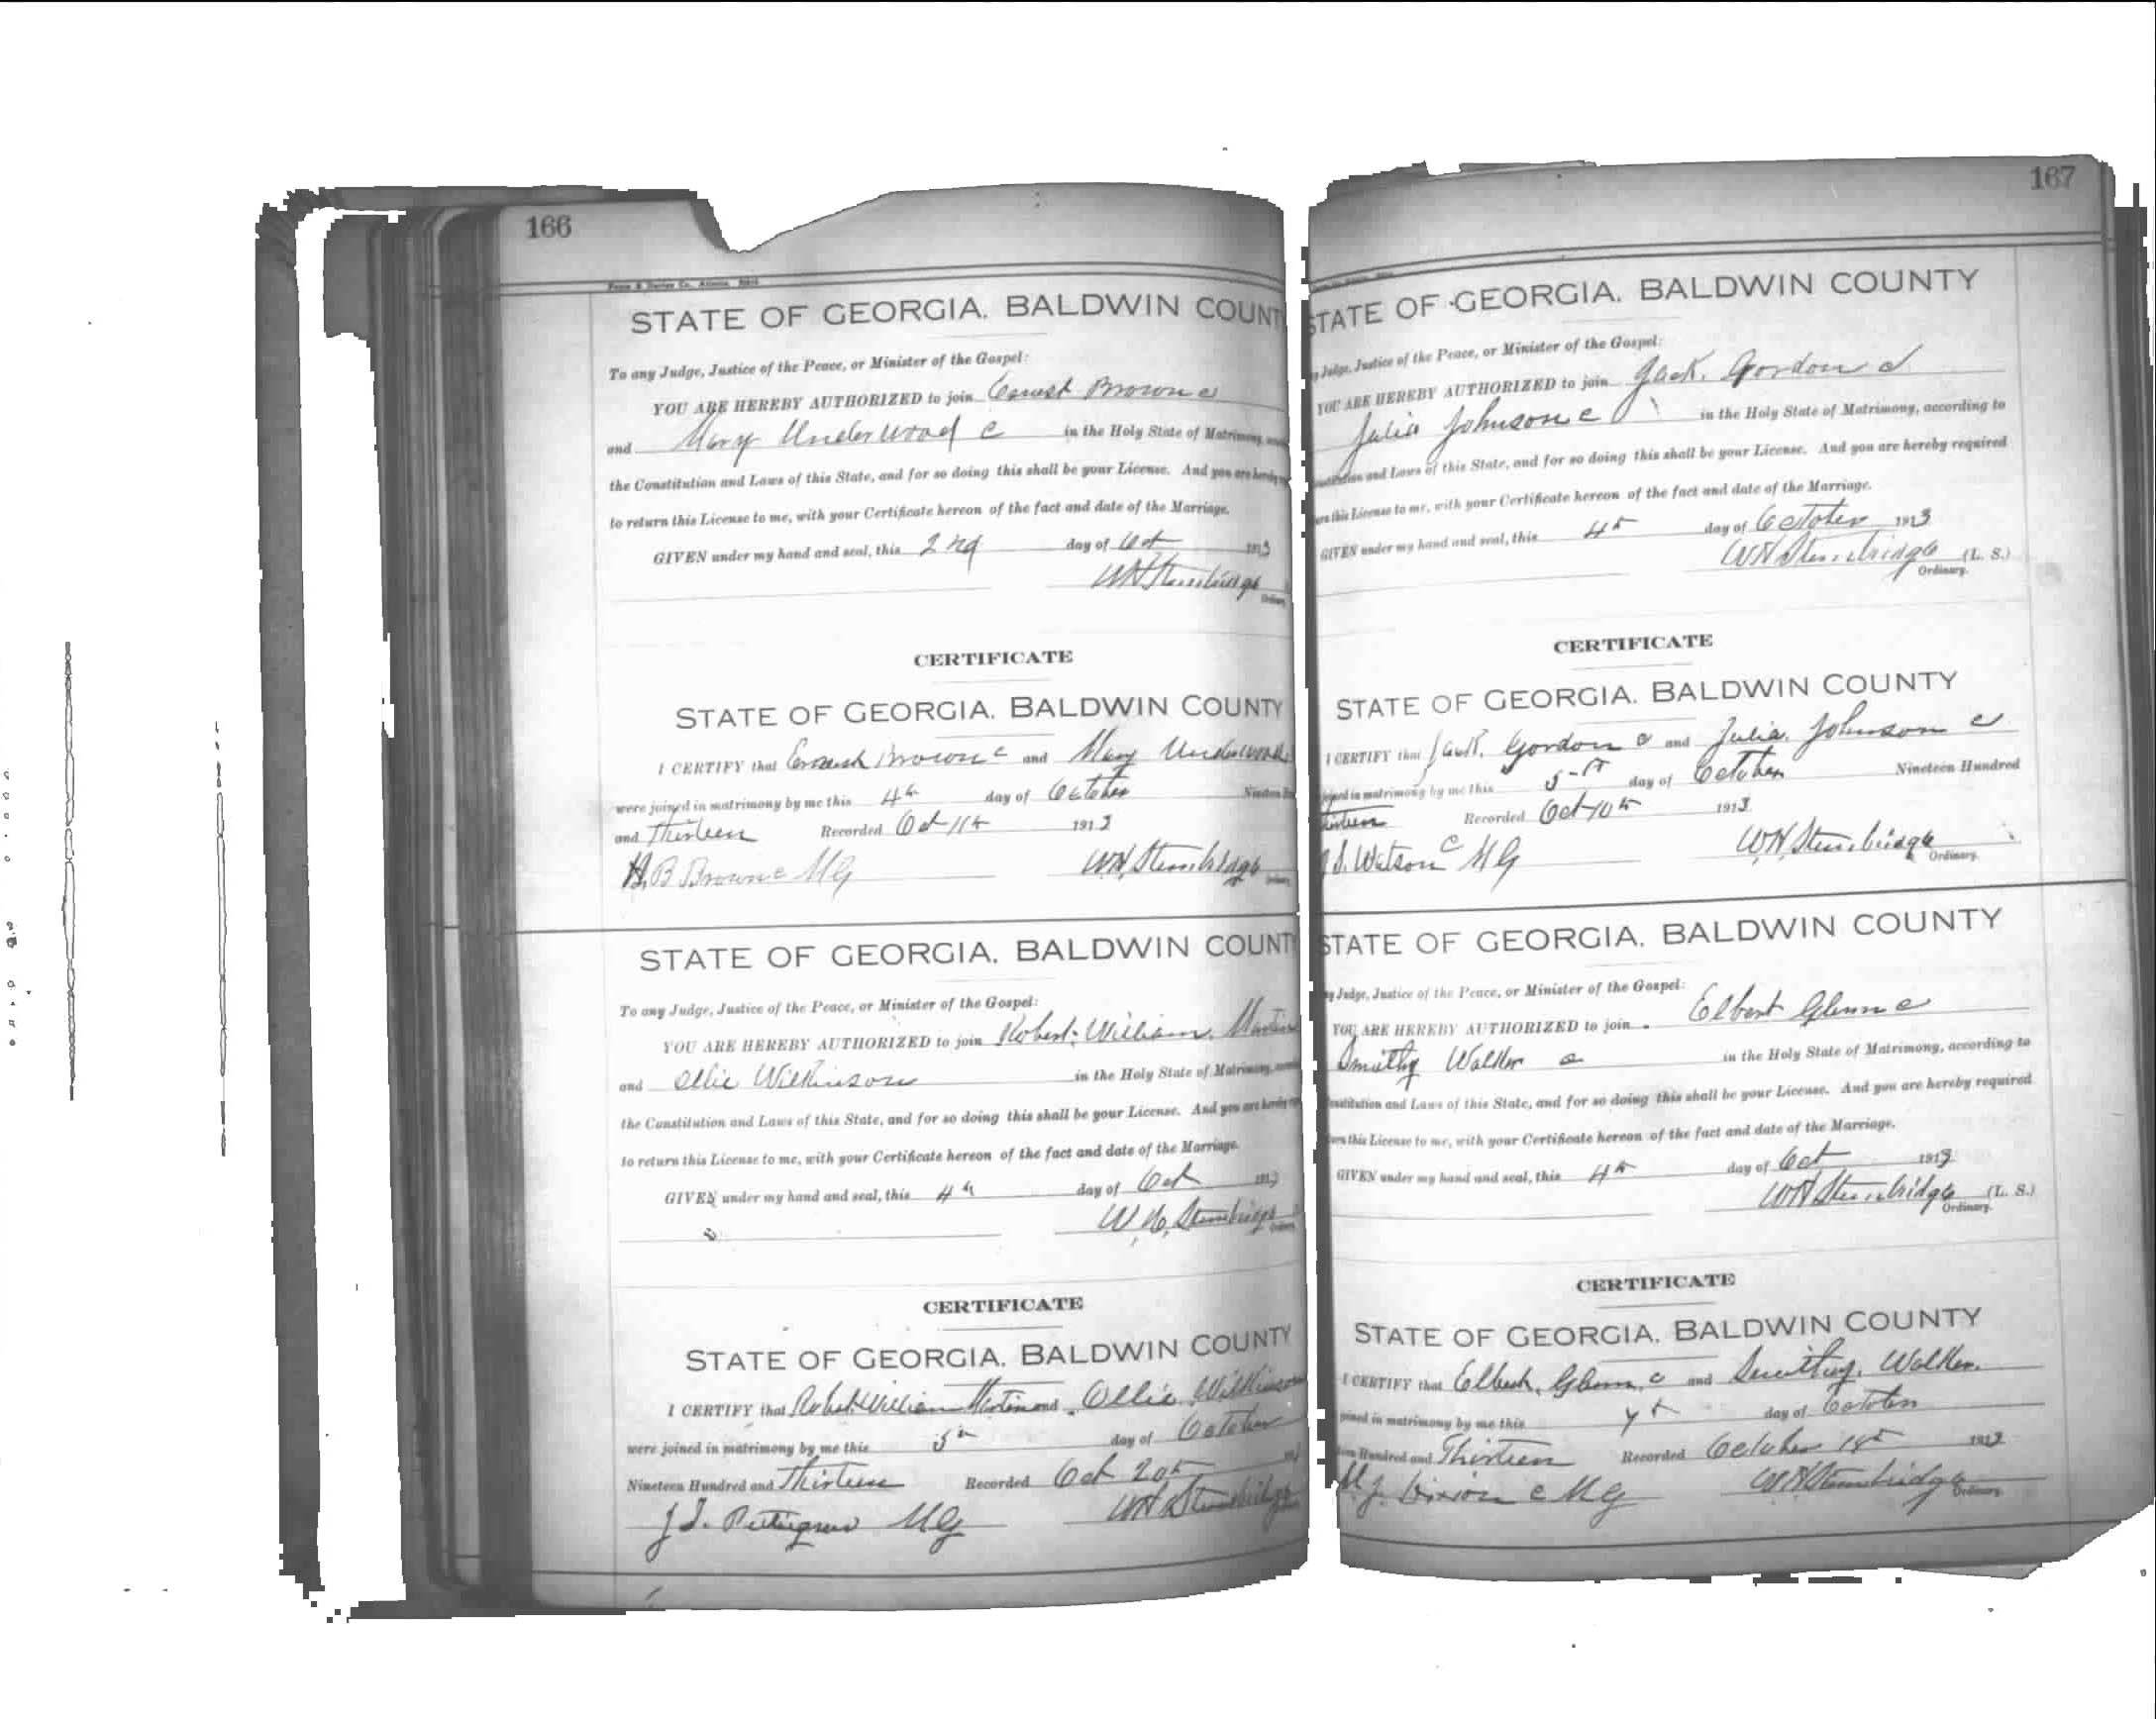 166
STATE OF GEORGIA. BALDWIN COUNT
To any Judge, Justice of the Peace, or Minister of the Gospel:
YOU ARE HEREBY AUTHORIZED to join Ernest Brown c
and Mary Underwood c in the Holy State of Matrimony,
the Constitution and Laws of this State, and for so doing this shall be your License. And you are hereby
to return this License to me, with your Certificate hereon of the fact and date of the Marriage.
GIVEN under my hand and seal, this 2nd day of Oct 1913
WH Stembridge
Ordinary
CERTIFICATE
STATE OF GEORGIA. BALDWIN COUNTY
I CERTIFY that Ernest Brown c and Mary Underwood
were joined in matrimony by me this 4th day of October
and Thirteen Recorded Oct 11th 1913
H.B Brown c MG W.H, Stembridge
STATE OF GEORGIA. BALDWIN COUNT
To any Judge, Justice of the Peace, or Minister of the Gospel:
YOU ARE HEREBY AUTHORIZED to join Robert William Martin
and Ollie Wilkinson in the Holy State of Matrimony,
the Constitution and Laws of this State, and for so doing this shall be your License. And you are hereby
to return this License to me, with your Certificate hereon of the fact and date of the Marriage.
GIVEN under my hand and seal, this 4th day of Oct 1913
W, H, Stembridge
CERTIFICATE
STATE OF GEORGIA. BALDWIN COUNTY
I CERTIFY that Robert William Martin and Ollie Wilkinson
were joined in matrimony by me this 5th day of October
Nineteen Hundred and Thirteen Recorded Oct 20th
J.J. Pettigrew MG WH Stembridge
167
STATE OF GEORGIA. BALDWIN COUNTY
Judge, Justice of the Peace, or Minister of the Gospel:
YOU ARE HEREBY AUTHORIZED to join Jack Gordon c
Julia Johnson c in the Holy State of Matrimony, according to
and Laws of this State, and for so doing this shall be your License. And you are hereby required
this License to me, with your Certificate hereon of the fact and date of the Marriage.
GIVEN under my hand and seal, this 4th day of October 1913
WH Stembridge (L. S.)
Ordinary.
CERTIFICATE
STATE OF GEORGIA. BALDWIN COUNTY
I CERTIFY that Jack Gordon c and Julia Johnson c
joined in matrimony by me this 5th day of October Nineteen Hundred
Recorded Oct 10th 1913
J.S. Watson c MG W,H, Stembridge
Ordinary.
STATE OF GEORGIA. BALDWIN COUNTY
Judge, Justice of the Peace, or Minister of the Gospel:
YOU ARE HEREBY AUTHORIZED to join Elbert Glenn c
Smithy Walker c in the Holy State of Matrimony, according to
and Laws of this State, and for so doing this shall be your License. And you are hereby required
this License to me, with your Certificate hereon of the fact and date of the Marriage.
GIVEN under my hand and seal, this 4th day of Oct 1913
WH Stembridge (L. S.)
Ordinary.
CERTIFICATE
STATE OF GEORGIA. BALDWIN COUNTY
I CERTIFY that Elbert Glenn c and Smithy Walker
joined in matrimony by me this 7th day of October
Hundred and Thirteen Recorded October 18th 1913
M.J. Dixion c MG WH Stembridge
Ordinary.